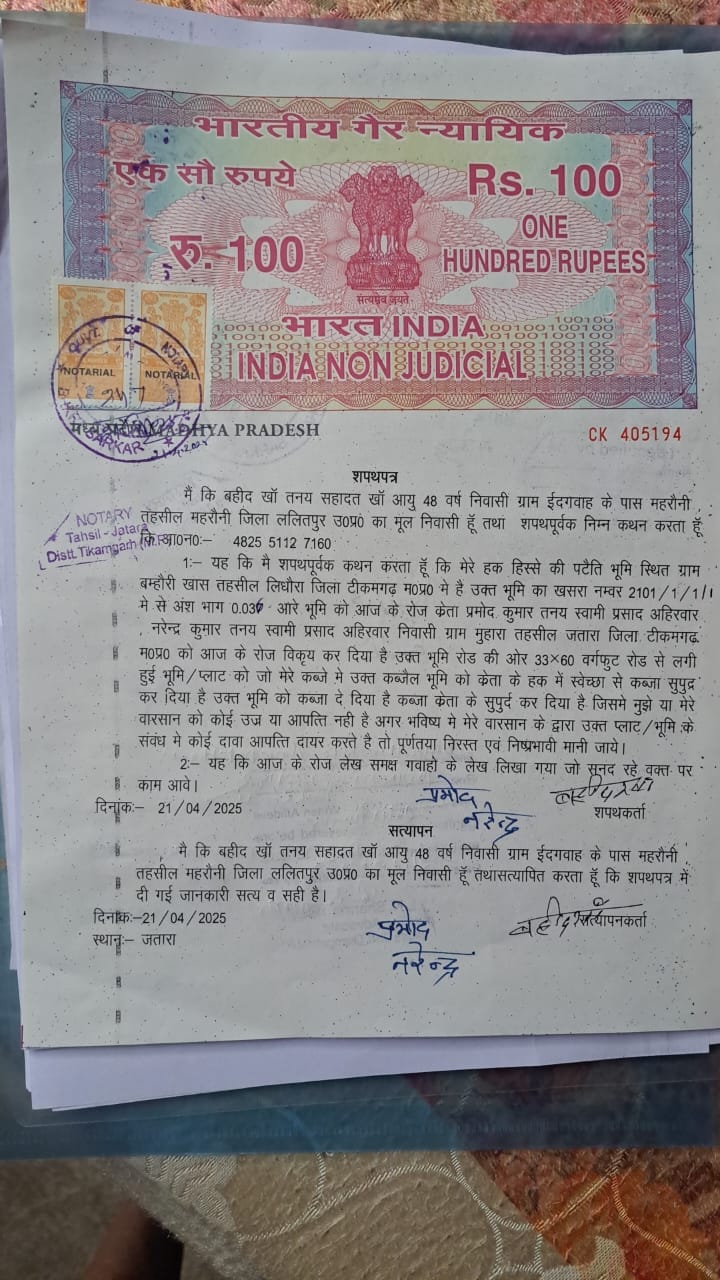 भारतीय गैर न्यायिक
एक सौ रुपये
Rs. 100
रु. 100
ONE
HUNDRED RUPEES
सत्यमेव जयते
भारत INDIA
INDIA NON JUDICIAL
NOTARIAL NOTARIAL
MADHYA PRADESH
CK 405194
शपथपत्र
मैं कि बहीद खॉ तनय सहादत खॉ आयु 48 वर्ष निवासी ग्राम ईदगवाह के पास महरौनी,
NOTARY
Tahsil - Jatara
Distt. Tikamgarh (M.P.)
तहसील महरौनी जिला ललितपुर उ0प्र0 का मूल निवासी हूँ तथा शपथपूर्वक निम्न कथन करता हूँ
कि आ0न0:- 4825 5112 7160
1:- यह कि मै शपथपूर्वक कथन करता हूँ कि मेरे हक हिस्से की पटैति भूमि स्थित ग्राम
बम्हौरी खास तहसील लिधौरा जिला टीकमगढ़ म0प्र0 मे है उक्त भूमि का खसरा नम्बर 2101/1/1/1
मे से अंश भाग आरे भूमि को आज के रोज क्रेता प्रमोद कुमार तनय स्वामी प्रसाद अहिरवार
, नरेन्द्र कुमार तनय स्वामी प्रसाद अहिरवार निवासी ग्राम मुहारा तहसील जतारा जिला टीकमगढ़
म0प्र0 को आज के रोज विक्रय कर दिया है उक्त भूमि रोड की ओर 33×60 वर्गफुट रोड से लगी
हुई भूमि/प्लाट को जो मेरे कब्जे मे उक्त कब्जैल भूमि को क्रेता के हक में स्वेच्छा से कब्जा सुपुद्र
कर दिया है उक्त भूमि को कब्जा दे दिया है कब्जा क्रेता के सुपुर्द कर दिया है जिसमे नुझे या मेरे
वारसान को कोई उज्र या आपत्ति नही है अगर भविष्य मे मेरे वारसान के द्वारा उक्त प्लाट/भूमि के
संवंध मे कोई दावा आपत्ति दायर करते है तो पूर्णतया निरस्त एवं निष्प्रभावी मानी जाये।
2:- यह कि आज के रोज लेख समक्ष गवाहो के लेख लिखा गया जो सनद रहे वक्त पर
काम आवे।
प्रमोद
नरेन्द्र
दिनांक:- 21/04/2025
शपथकर्ता
सत्यापन
मै कि बहीद खॉ तनय सहादत खॉ आयु 48 वर्ष निवासी ग्राम ईदगवाह के पास महरौनी,
तहसील महरौनी जिला ललितपुर उ0प्र0 का मूल निवासी हूँ तथासत्यापित करता हूँ कि शपथपत्र में
दी गई जानकारी सत्य व सही है।
दिनांक:-21/04/2025
प्रमोद
सत्यापनकर्ता
स्थान:- जतारा
नरेन्द्र